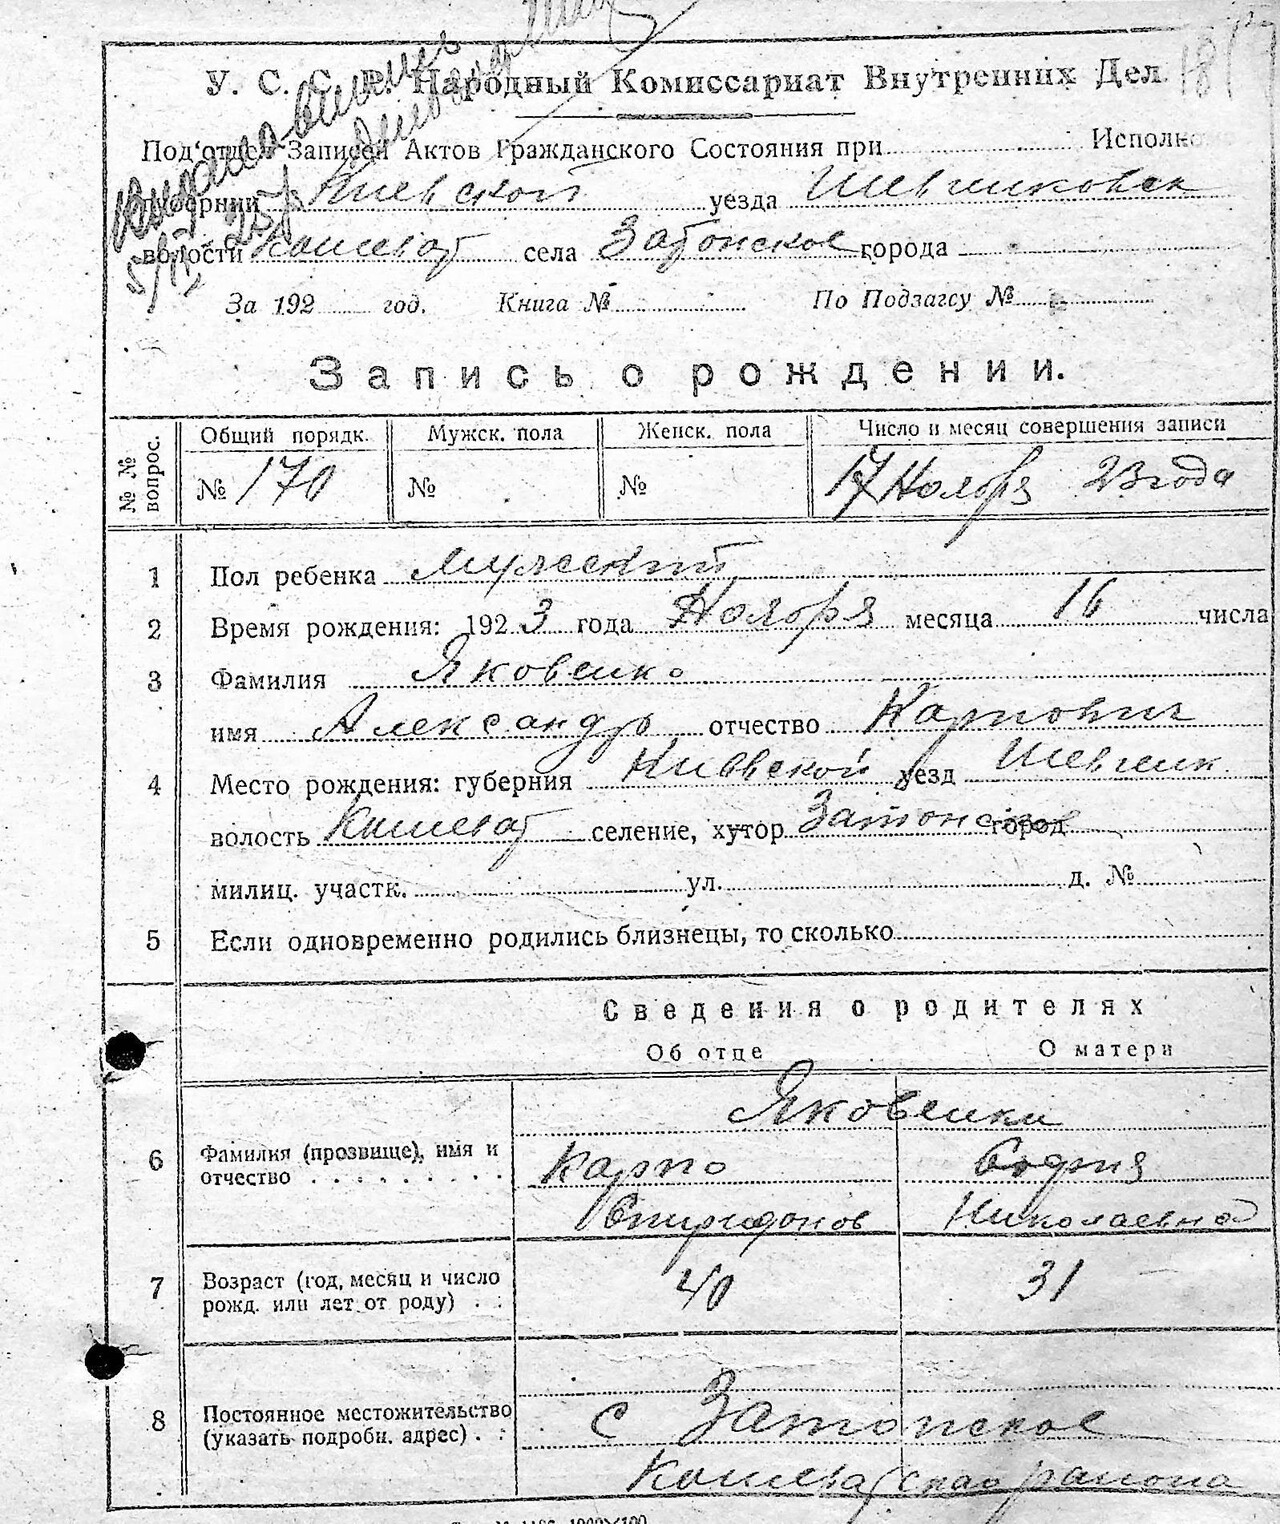 У. С. С. Р. Народный Комиссариат Внутренних Дел
Под'отдел Записей Актов Гражданского Состояния при Исполком
губернии Киевской уезда Шевченковск
волости Кошеват села Затонское города
За 192 год. Книга № По Подзагсу №
Запись о рождении.
№ № вопрос. Общий порядк. Мужск. пола Женск. пола Число и месяц совершения записи
№ 170 № № 17 Ноября 23 года
1 Пол ребенка мужеский
2 Время рождения: 1923 года Ноября месяца 16 числа
3 Фамилия Яковенко
имя Александр отчество Карпович
4 Место рождения: губерния Киевской уезд Шевченк.
волость Кошеват селение, хутор Затонское город
милиц. участк. ул. д. №
5 Если одновременно родились близнецы, то сколько
Сведения о родителях
Об отце О матери
Яковенки
6 Фамилия (прозвище), имя и отчество Карпо София
Спиридонов Николаевна
7 Возраст (год, месяц и число рожд. или лет от роду) 40 31
8 Постоянное местожительство (указать подробн. адрес) с Затонское
Кошеватскаго района